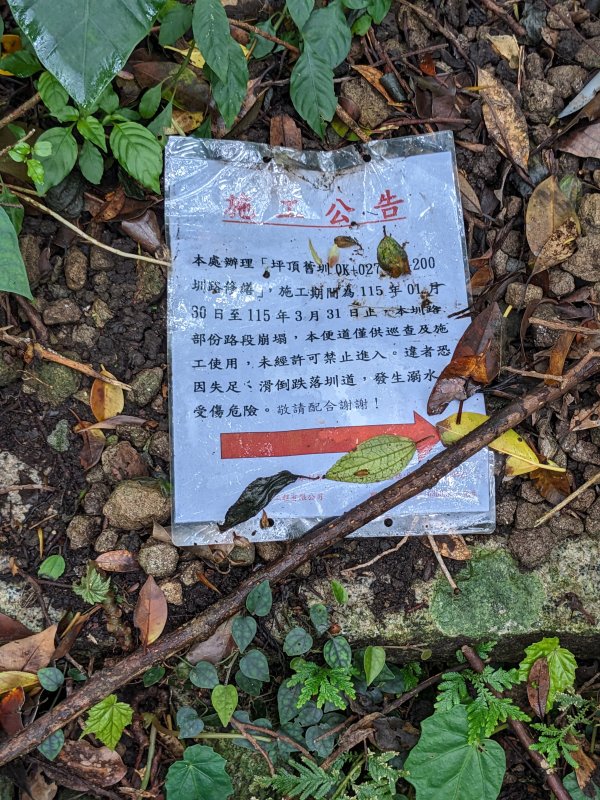 施工公告
本處辦理「坪頂舊圳0K+027 200
圳路修繕」，施工期間為 115 年 01 月
30 日至 115 年 3 月 31 日止，本圳路
部份路段崩塌，本便道僅供巡查及施
工使用，未經許可禁止進入。違者恐
因失足、滑倒跌落圳道，發生溺水
受傷危險。敬請配合謝謝！
有限公司